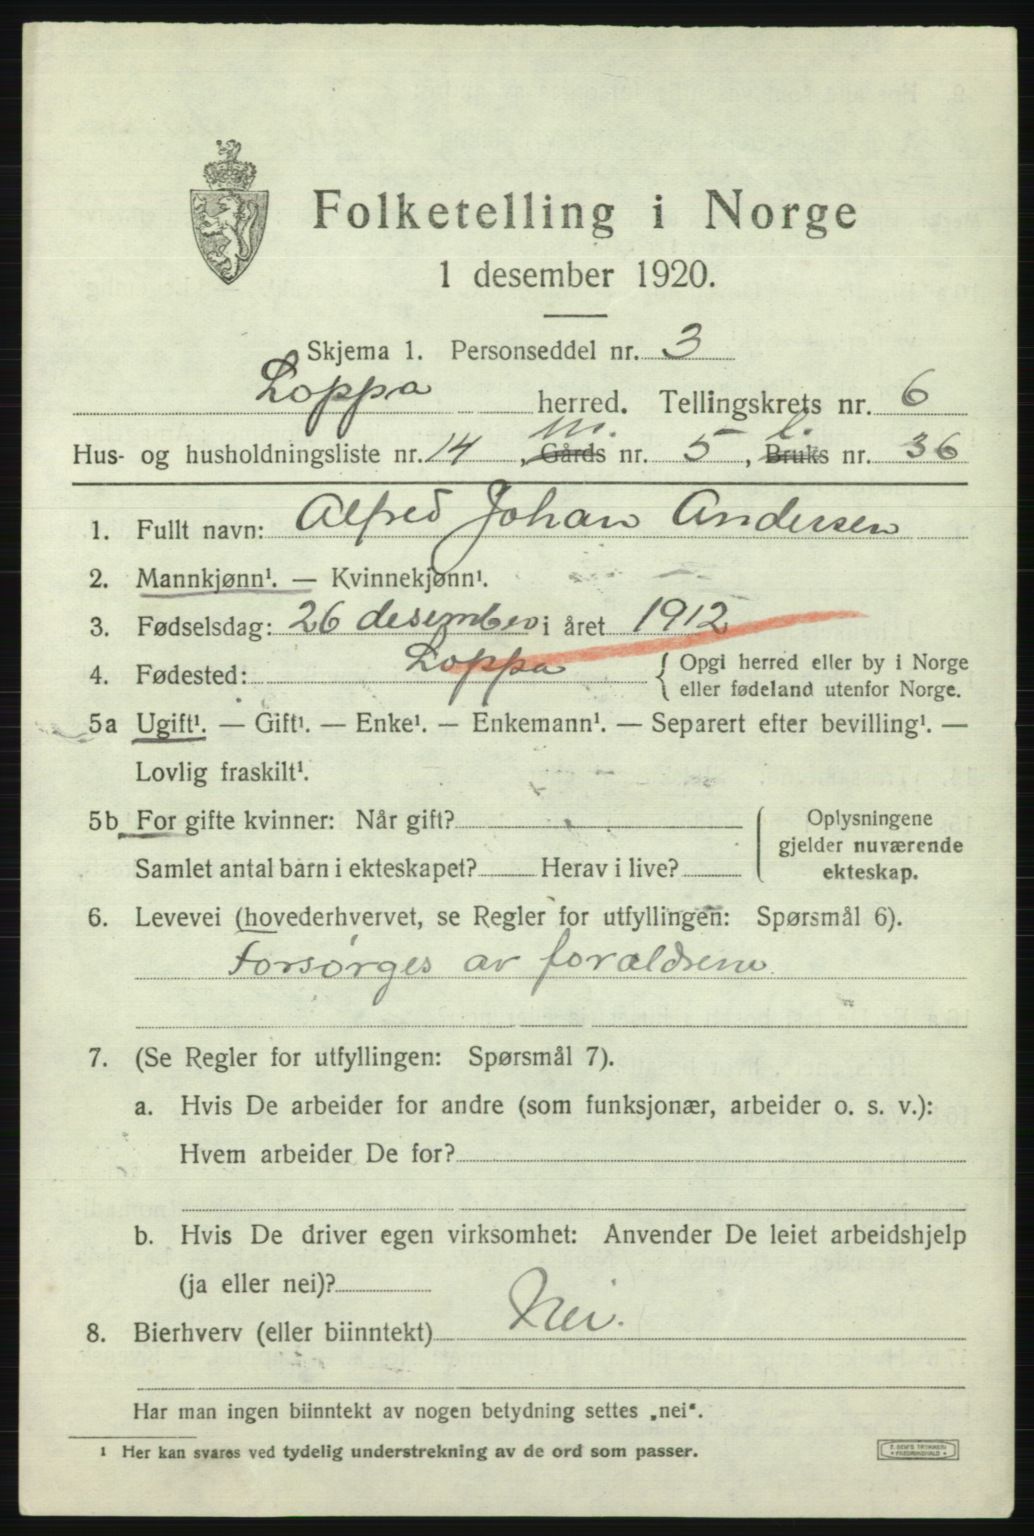 Folketelling i Norge
1 desember 1920.
Skjema 1. Personseddel nr. 3
Loppa herred. Tellingskrets nr. 6
m. l.
Hus- og husholdningsliste nr. 14, Gårds nr. 5, Bruks nr. 36
1. Fullt navn: Alfred Johan Andersen
2. Mannkjønn¹. — Kvinnekjønn¹.
3. Fødselsdag: 26 desember i året 1912
4. Fødested: Loppa { Opgi herred eller by i Norge
eller fødeland utenfor Norge.
5a Ugift¹. — Gift¹. — Enke¹. — Enkemann¹. — Separert efter bevilling¹. —
Lovlig fraskilt¹.
5b For gifte kvinner: Når gift?
Samlet antal barn i ekteskapet? Herav i live?
Oplysningene
gjelder nuværende
ekteskap.
6. Levevei (hovederhvervet, se Regler for utfyllingen: Spørsmål 6).
Forsørges av forældrene
7. (Se Regler for utfyllingen: Spørsmål 7).
a. Hvis De arbeider for andre (som funksjonær, arbeider o. s. v.):
Hvem arbeider De for?
b. Hvis De driver egen virksomhet: Anvender De leiet arbeidshjelp
(ja eller nei)?
8. Bierhverv (eller biinntekt) Nei.
Har man ingen biinntekt av nogen betydning settes „nei“.
¹ Her kan svares ved tydelig understrekning av de ord som passer.